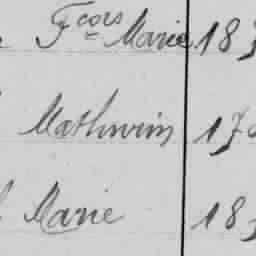 Fcois Marie 18
Mathurin 17
Marie 18